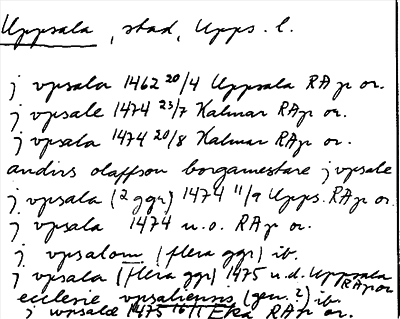 Uppsala, stad, Upps. l.
j vpsala 1462 20/4 Uppsala RAp or.
j vpsale 1474 23/7 Kalmar RAp or.
j vpsala 1474 20/8 Kalmar RAp or.
andirs olaffson borgamestare j vpsale
j vpsala (2 ggr) 1474 11/9 Upps. RAp or.
j vpsala 1474 u.o. RAp or.
j vpsalom (flera ggr) ib.
j vpsala (flera ggr) 1475 u.d. Uppsala RAp or
ecclesie vpsaliensis (gen. 2) ib.
j wpsale 1475 16/1 Eka RAp or.